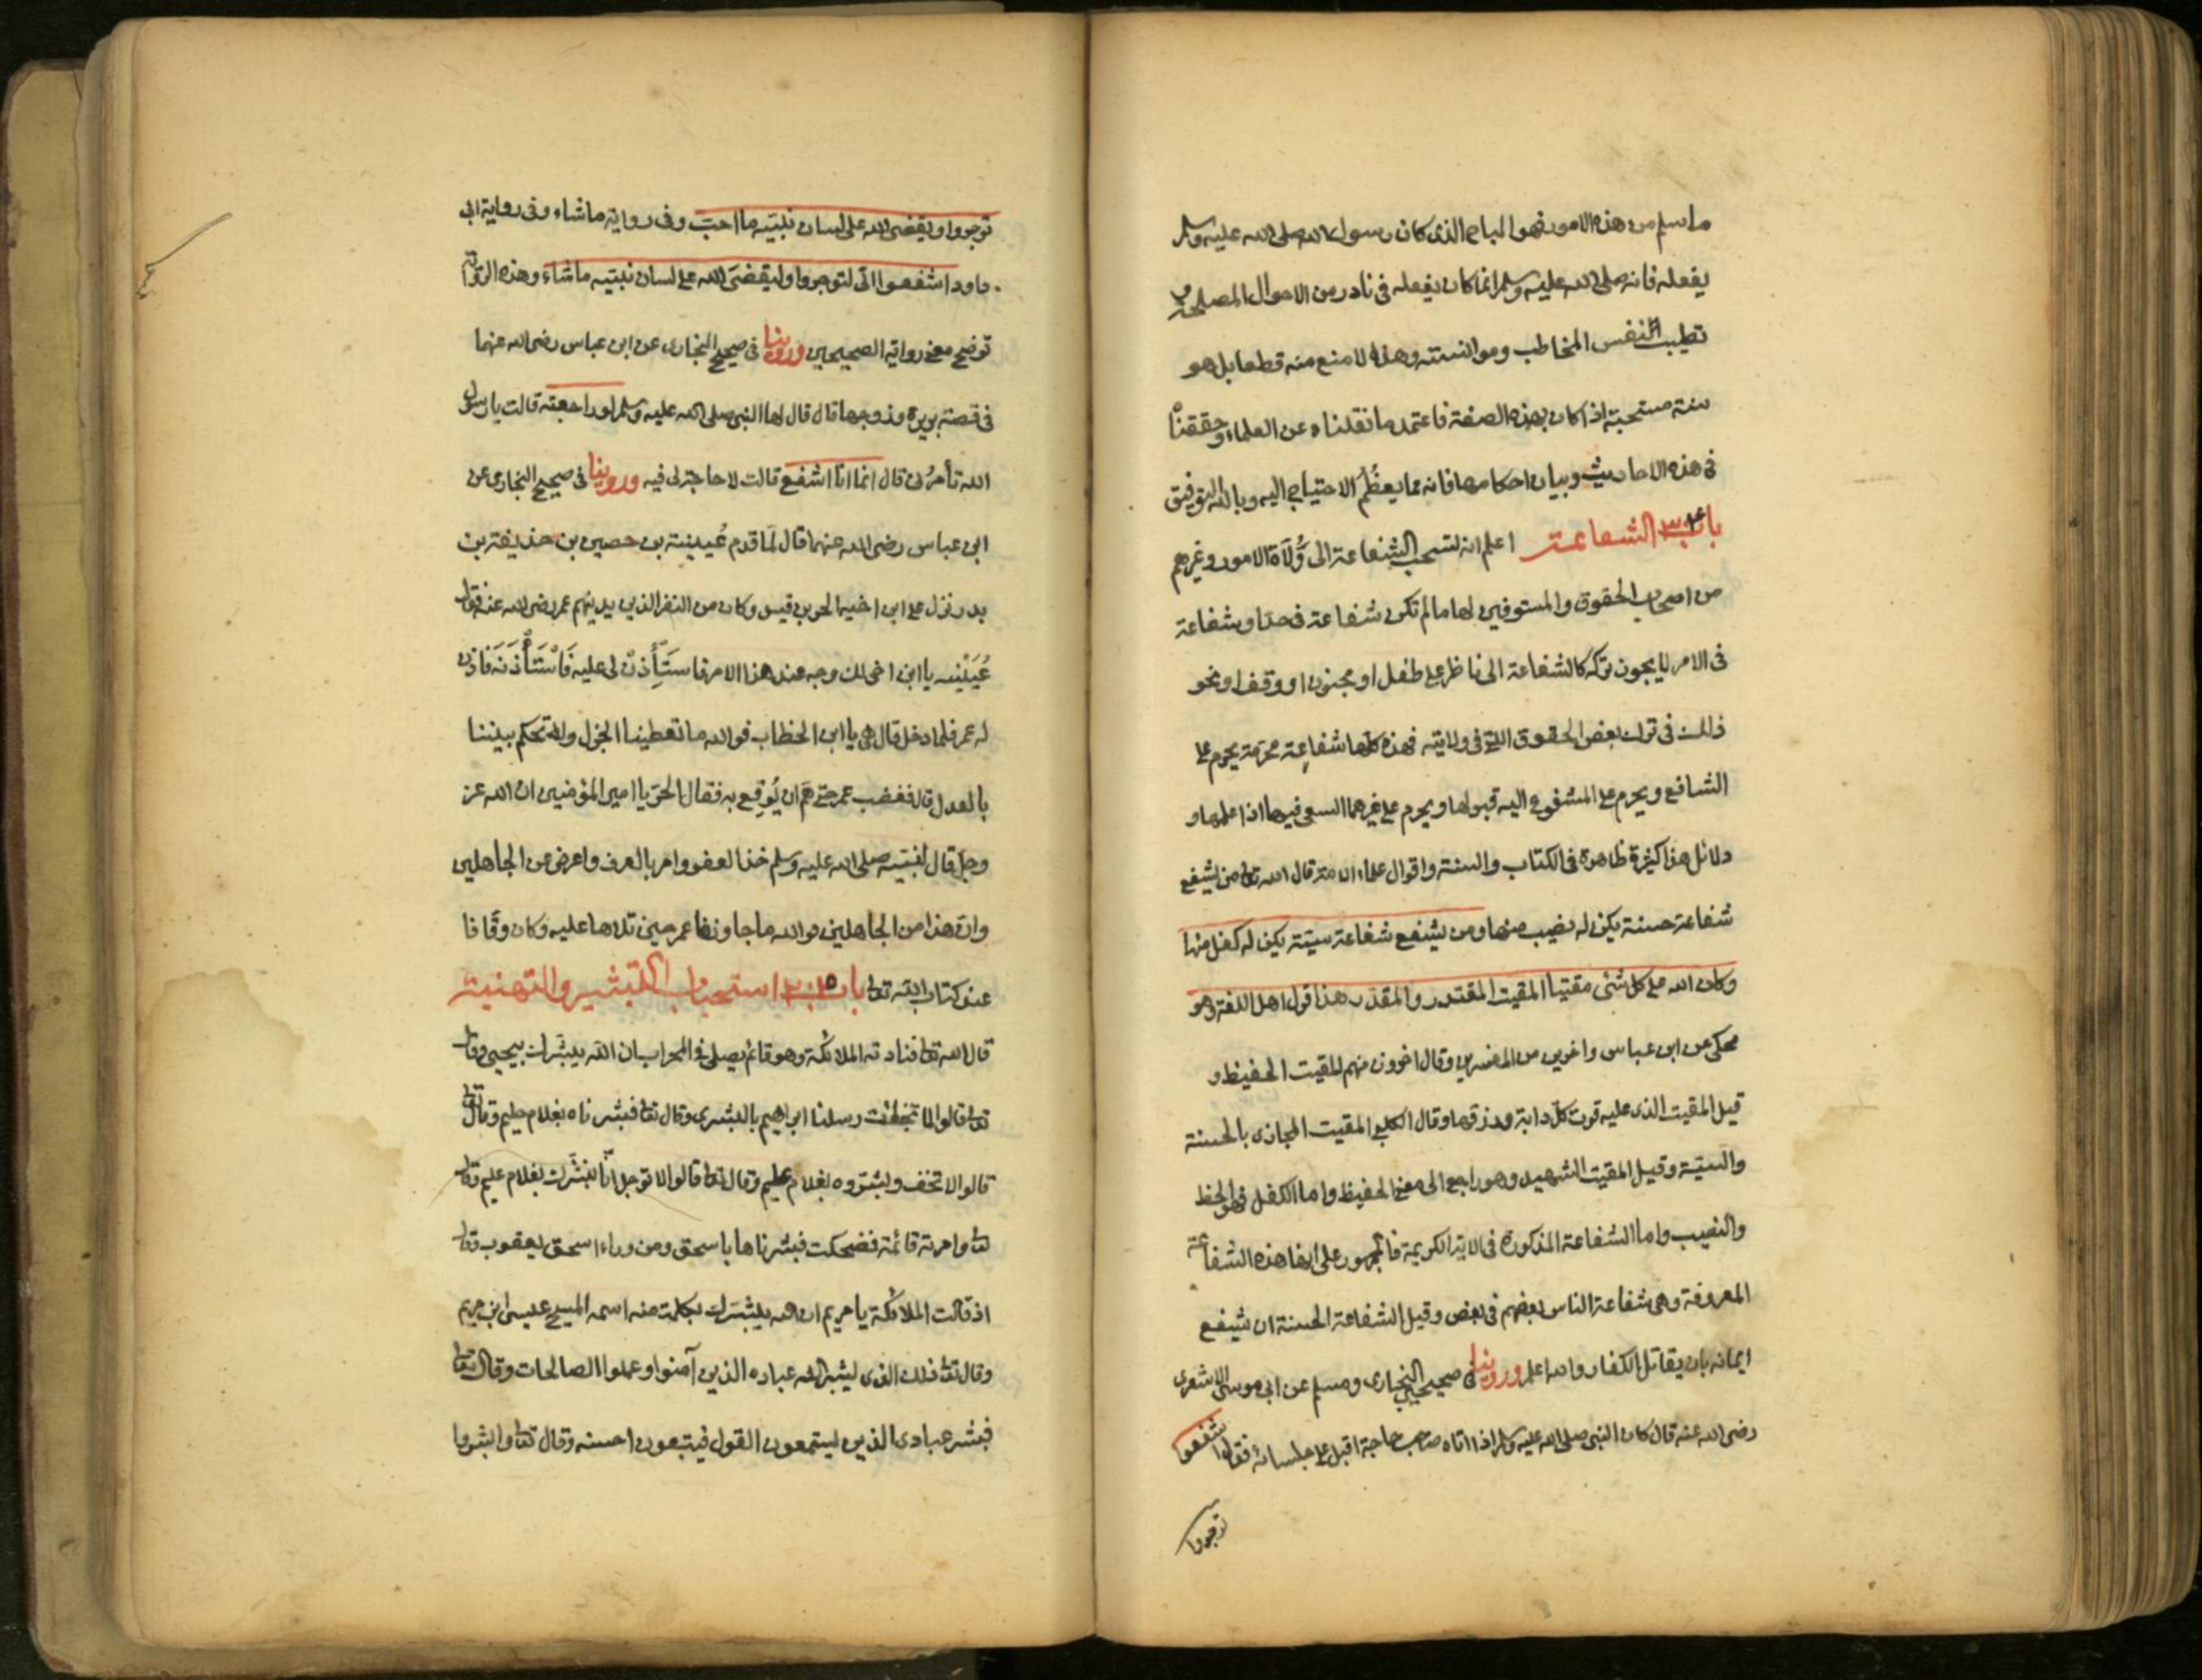 ما سلم من هذه الامور فهو المباح الذى كان رسول الله صلى الله عليه وسلم
يفعله فانه صلى الله عليه وسلم انما كان يفعله فى نادر من الاحوال لمصلحة و
تطييب النفس المخاطب وموانسته وهذا لا منع منه قطعا بل هو
سنة مستحبة اذا كان بهذه الصفة فاعتمد ما نقلناه عن العلماء وحققنا
فى هذه الاحاديث وبيان احكامها فانه مما يعظُمُ الاحتياج اليه وبالله التوفيق
باب الشفاعة اعلم انه تستحب الشفاعة الى وُلَاة الامور وغيرهم
من اصحاب الحقوق والمستوفين لها ما لم تكن شفاعة فى حد او شفاعة
فى الامر لا يجوز تركه كالشفاعة الى ناظر على طفل او مجنون او وقف او نحو
ذالك فى ترك بعض الحقوق التى فى ولايته فهذه كلها شفاعة محرمة يحرم على
الشافع ويحرم على المشفوع اليه قبولها ويحرم على غيرهما السعى فيها اذا علمها و
دلائل هذا كثيرة ظاهرة فى الكتاب والسنة واقوال علماء الامة قال الله تعا من يشفع
شفاعة حسنة يكن له نصيب منها ومن يشفع شفاعة سيئة يكن له كفل منها
وكان الله على كل شئ مقيتا المقيت المقتدر والمقدر هذا قول اهل اللغة وهو
محكى عن ابن عباس واخرين من المفسرين وقال اخرون منهم المقيت الحفيظ و
قيل المقيت الذى عليه قوت كلّ دابة ورزقها وقال الكلبى المقيت المجازى بالحسنة
والسيّئة وقيل المقيت الشهيد وهو راجع الى معنى الحفيظ واما الكفل فهو الحظ
والنصيب واما الشفاعة المذكورة فى الاية الكريمة فالجمهور على انها هذه الشفاعة
المعروفة وهى شفاعة الناس بعضهم فى بعض وقيل الشفاعة الحسنة ان يشفع
ايمانه بان يقاتل الكفار والله اعلم وروينا فى صحيحى البخارى ومسلم عن ابى موسى الاشعرى
رضى الله عنه قال كان النبى صلى الله عليه وسلم اذا اتاه صاحب حاجة اقبل على جلسائه فقال اشفعوا
توجروا
توجروا ويقضى الله على لسان نبيّه ما احبّ وفى رواية ما شاء وفى رواية ابى
داود اشفعوا الىّ لتوجروا وليقضىَ الله على لسان نبيّه ما شاء وهذه الرواية
توضح معنى رواية الصحيحين وروينا فى صحيح البخارى عن ابن عباس رضى الله عنهما
فى قصة بريرة وزوجها قال قال لها النبى صلى الله عليه وسلم لو راجعته قالت يا رسول
الله تأمرُنى قال انما انا اشفع قالت لا حاجة لى فيه وروينا فى صحيح البخارى عن
ابن عباس رضى الله عنهما قال لمّا قدم عُيينة بن حصين بن حذيفة بن
بدر نزل على ابن اخيه الحر بن قيس وكان من النفر الذين يدنيهم عمر رضى الله عنه فقال
عُيَيْنه يا ابن اخى لك وجه عند هذا الامر فاستَأْذِنْ لى عليه فَاسْتَأْذَنَه فاذن
له عمر فلما دخل قال هى يا ابن الخطاب فوالله ما تعطينا الجزل ولا تحكم بيننا
بالعدل قال فغضب عمر حتى هَمّ ان يُوقع به فقال الحرّ يا امير المؤمنين ان الله عز
وجل قال لنبيّه صلى الله عليه وسلم خذ العفو وامر بالعرف واعرض عن الجاهلين
وانّ هذا من الجاهلين فوالله ما جاوزها عمر حين تلاها عليه وكان وقّافا
عند كتاب الله تعا باب استحباب التبشير والتهنية
قال الله تعا فنادته الملائكة وهو قائم يصلى فى المحراب ان الله يبشّرك بيحيى وقال
تعا قالوا لما جائت رسلنا ابراهيم بالبشرى وقال تعا فبشرناه بغلام حليم وقال تعا
قالوا لا تخف وبشّروه بغلام عليم وقال تعا قالوا لا توجل انّا نبشّرك بغلام عليم وقال
تعا وامرته قائمة فضحكت فبشرناها باسحق ومن وراء اسحق يعقوب وقال
اذ قالت الملائكة يا مريم ان الله يبشّرك بكلمة منه اسمه المسيح عيسى ابن مريم
وقال تعا ذلك الذى يبشر الله عباده الذين آمنوا وعملوا الصالحات وقال تعا
فبشر عبادى الذين يستمعون القول فيتبعون احسنه وقال تعا وابشروا